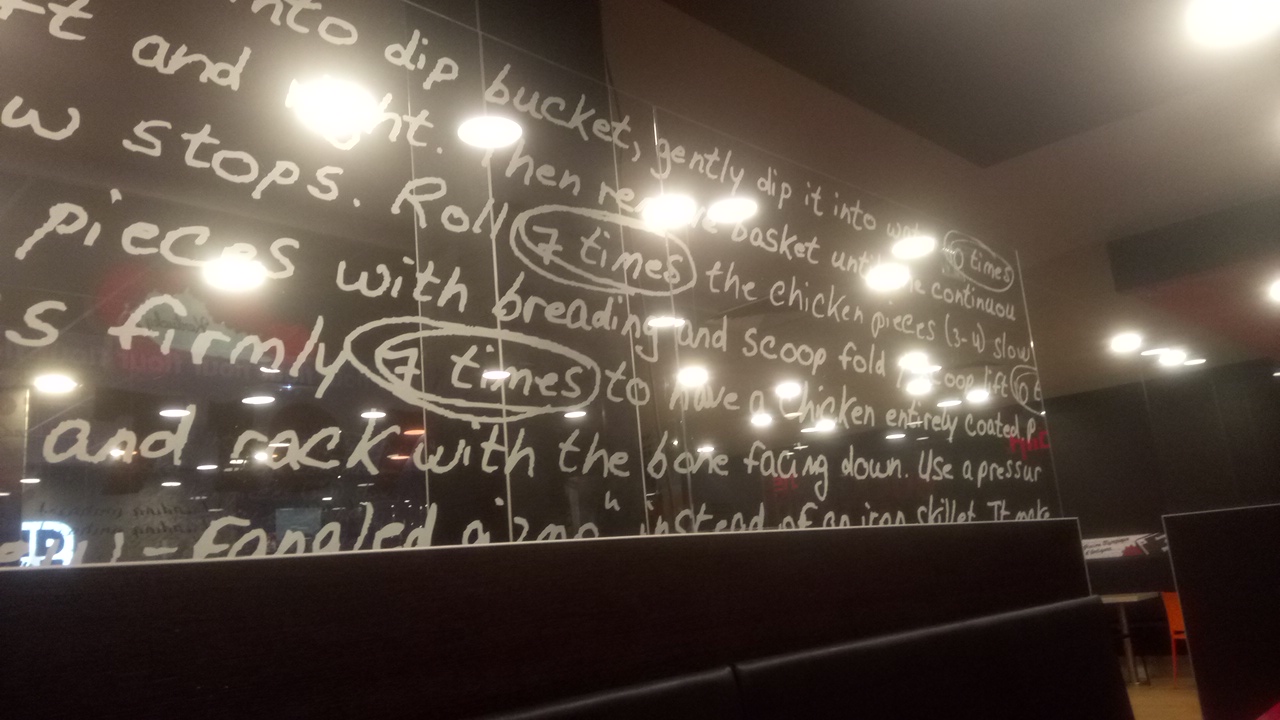 into dip bucket, gently dip it into 10 times
ft and Then basket until the continuou
w stops. Roll 7 times the chicken pieces (3-4) slow
pieces with breading and scoop fold scoop lift
s firmly 7 times to have a chicken entirely coated
and rack with the bone facing down. Use a pressur
- Fangled gizmo instead of an iron skillet. It make